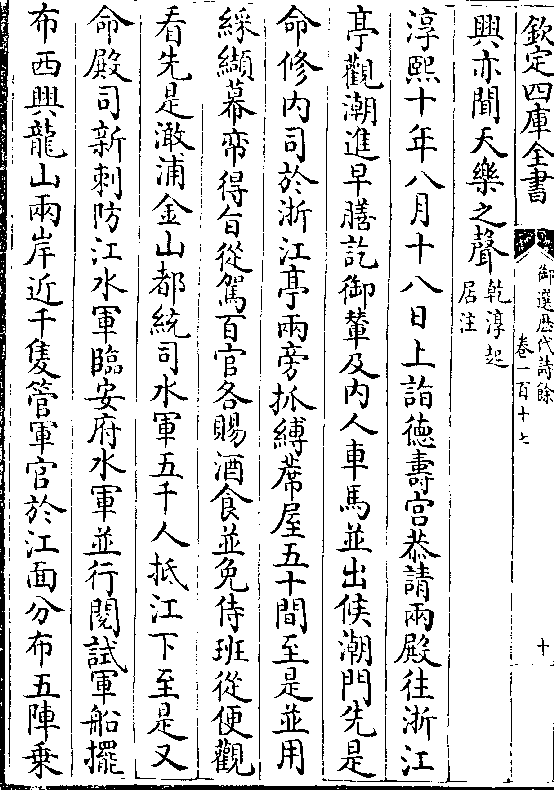 欽定四庫全書
御選歷代詩餘
卷一百十七
十
興亦聞天樂之聲乾淳起
居注
淳熙十年八月十八日上詣德壽宮恭請兩殿往浙江
亭觀潮進早膳訖御輦及內人車馬並出候潮門先是
命修內司於浙江亭兩旁抓縛蓆屋五十間至是並用
綵纈幕帟得旨從駕百官各賜酒食並免侍班從便觀
看先是澉浦金山都統司水軍五千人抵江下至是又
命殿司新刺防江水軍臨安府水軍並行閱試軍船擺
布西興龍山兩岸近千隻管軍官於江面分布五陣乗